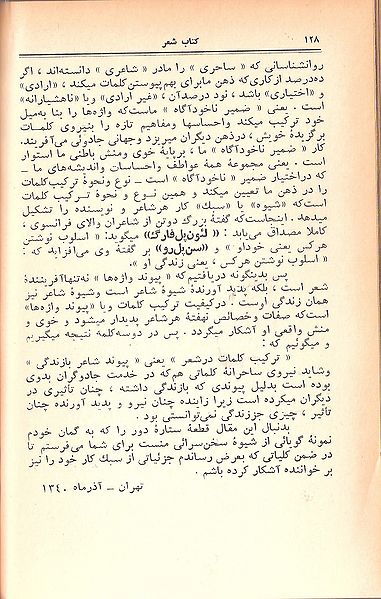 ۱۲۸
کتاب شعر
روانشناسانی که « ساحری » را مادر « شاعری » دانسته‌اند ، اگر
ده‌درصد ازکاری‌که ذهن مابرای بهم‌پیوستن‌کلمات میکند ، «ارادی»
و «اختیاری» باشد ، نود درصدآن، «غیر ارادی» ویا «ناهشیارانه»
است . یعنی « ضمیر ناخودآگاه » ماست‌که واژه‌ها را بنا به‌میل
خود ترکیب میکند واحساسها ومفاهیم تازه را بنیروی کلمات
برگزیدهٔ خویش ، درذهن دیگران میریزد وجهانی جادوئی می‌آفریند.
کار « ضمیر ناخودآگاه » ما ، برپایهٔ خوی ومنش باطنی ما استوار
است . یعنی مجموعهٔ همهٔ عواطف واحساسات واندیشه‌های ما ـ
که دراختیار ضمیر « ناخودآگاه » است ـ نوع ونحوهٔ ترکیب‌کلمات
را در ذهن ما تعیین میکند و همین نوع و نحوهٔ ترکیب کلمات
است‌که «شیوه» یا «سبك» کار هرشاعر و نویسنده را تشکیل
میدهد . اینجاست‌که گفتهٔ بزرگ دوتن از شاعران والای فرانسوی ،
کاملا مصداق می‌یابد : «لئون‌پل‌فارگ» میگوید: « اسلوب نوشتن
هرکس یعنی خوداو » و «سن‌پل‌رو» بر گفتهٔ وی می‌افزاید که :
« اسلوب نوشتن هرکس ، یعنی زندگی او ».
پس بدینگونه دریافتیم‌که « پیوند واژه‌ها » نه‌تنهاآفرینندهٔ
شعر است ، بلکه پدید آورندهٔ شیوهٔ شاعر است وشیوهٔ شاعر نیز
همان زندگی اوست . درکیفیت ترکیب کلمات ویا «پیوند واژه‌ها»
است‌که صفات وخصائص نهفتهٔ هرشاعر پدیدار میشود و خوی و
منش واقعی او آشکار میگردد . پس در دوسه‌کلمه نتیجه میگیریم
و میگوئیم که :
« ترکیب کلمات درشعر » یعنی « پیوند شاعر بازندگی »
وشاید نیروی ساحرانهٔ کلماتی هم‌که در خدمت جادوگران بدوی
بوده است بدلیل پیوندی که بازندگی داشته ، چنان تأثیری در
دیگران میکرده است زیرا زاینده چنان نیرو و پدید آورنده چنان
تأثیر ، چیزی جززندگی نمی‌توانستی بود .
بدنبال این مقال قطعهٔ ستارهٔ دور را که به گمان خودم
نمونهٔ گویائی از شیوهٔ سخن‌سرائی منست برای شما می‌فرستم تا
در ضمن کلیاتی که بعرض رساندم جزئیاتی از سبك کار خود را نیز
بر خواننده آشکار کرده باشم .
تهران ـ آذرماه ۱۳۴۰